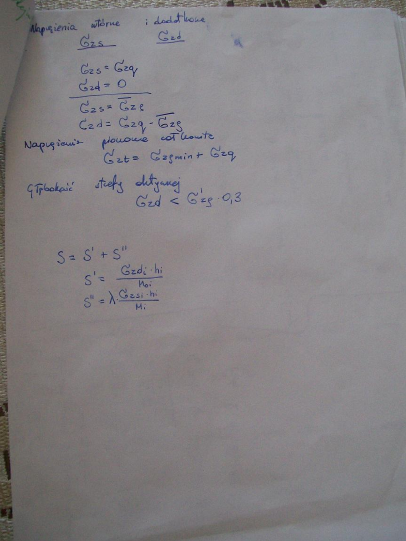 Naprężenia wtórne i dodatkowe
σzs σzd
σzs = σzq
σzd = 0
σzs = σ̅zg
σzd = σzq - σ̅zg
Naprężenia pionowe całkowite
σzt = σzgmin + σzq
Głębokość strefy aktywnej
σzd < σ'zg · 0,3
S = S' + S''
S' = σzdi · hi / Moi
S'' = λ σzsi · hi / Mi